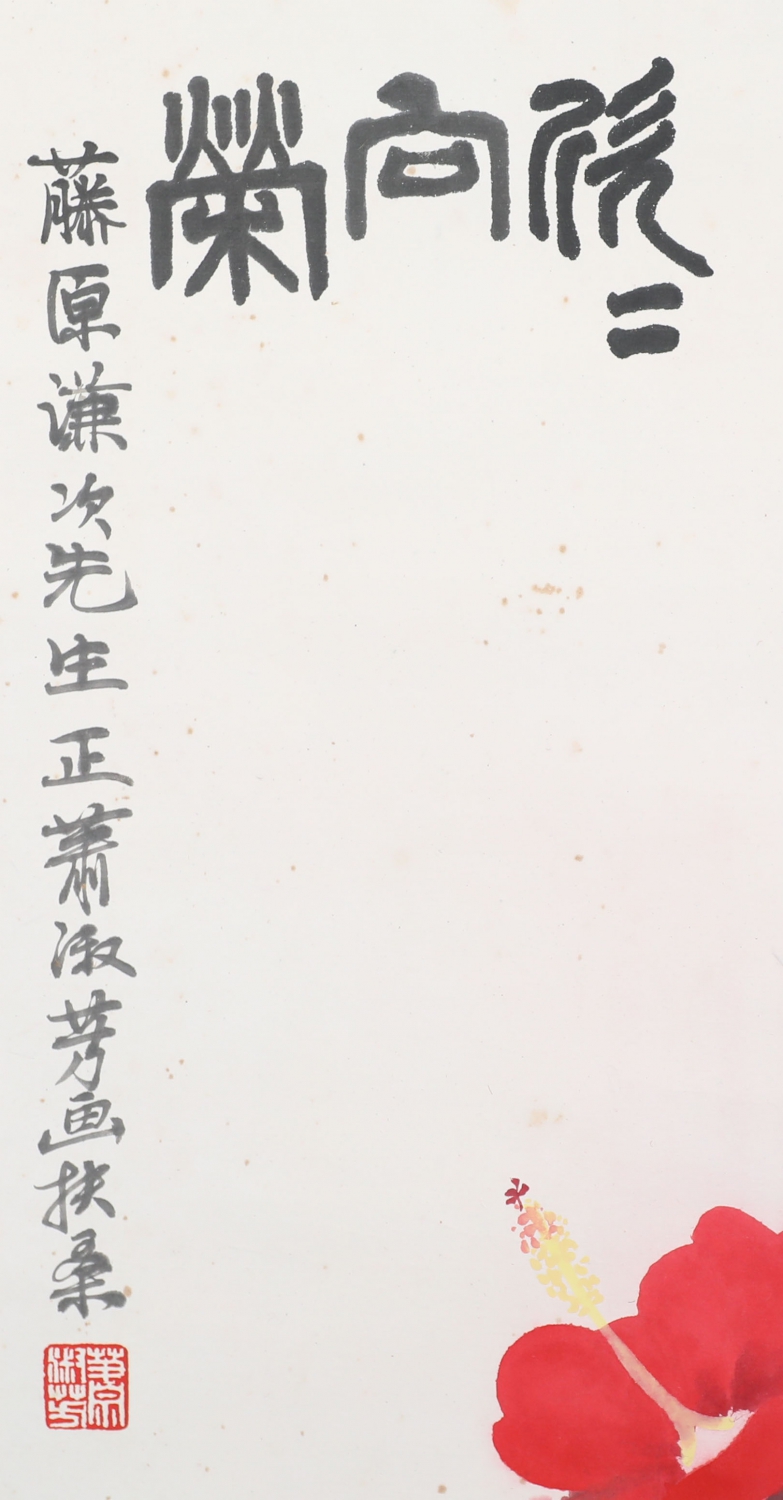 欣=向榮
藤原谦次先生正萧淑芳画扶桑
萧淑芳